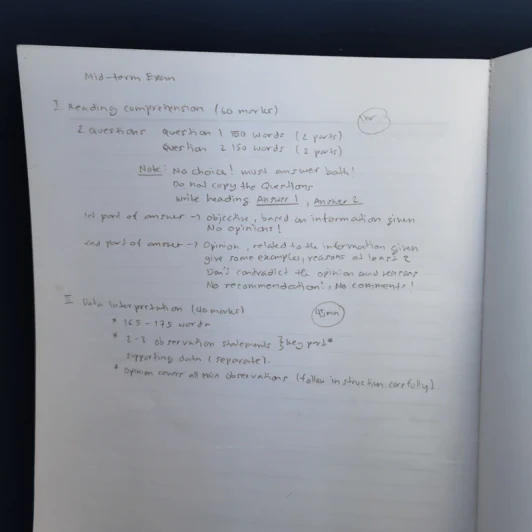 Mid-term Exam
I Reading comprehension (60 marks)
1hr
2 Questions Question 1 150 words (2 parts)
Question 2 150 words (2 parts)
Note: No choice! must answer both!
Do not copy the Questions
write heading Answer 1, Answer 2
1st part of answer → objective, based on information given
No opinions!
2nd part of answer → Opinion, related to the information given
give some examples, reasons at least 2
Don't contradict the opinion and reasons
No recommendation!, No comments!
II Data Interpretation (40 marks)
45 min
* 165-175 words
* 2-3 observation statements } key part *
supporting data (separate).
* Opinion covers all main observations (follow instruction carefully)